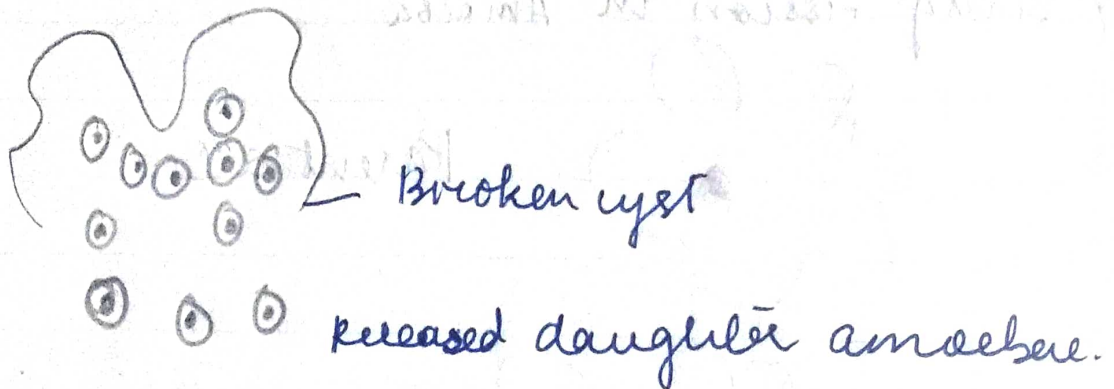 Broken cyst
Released daughter amoebae.